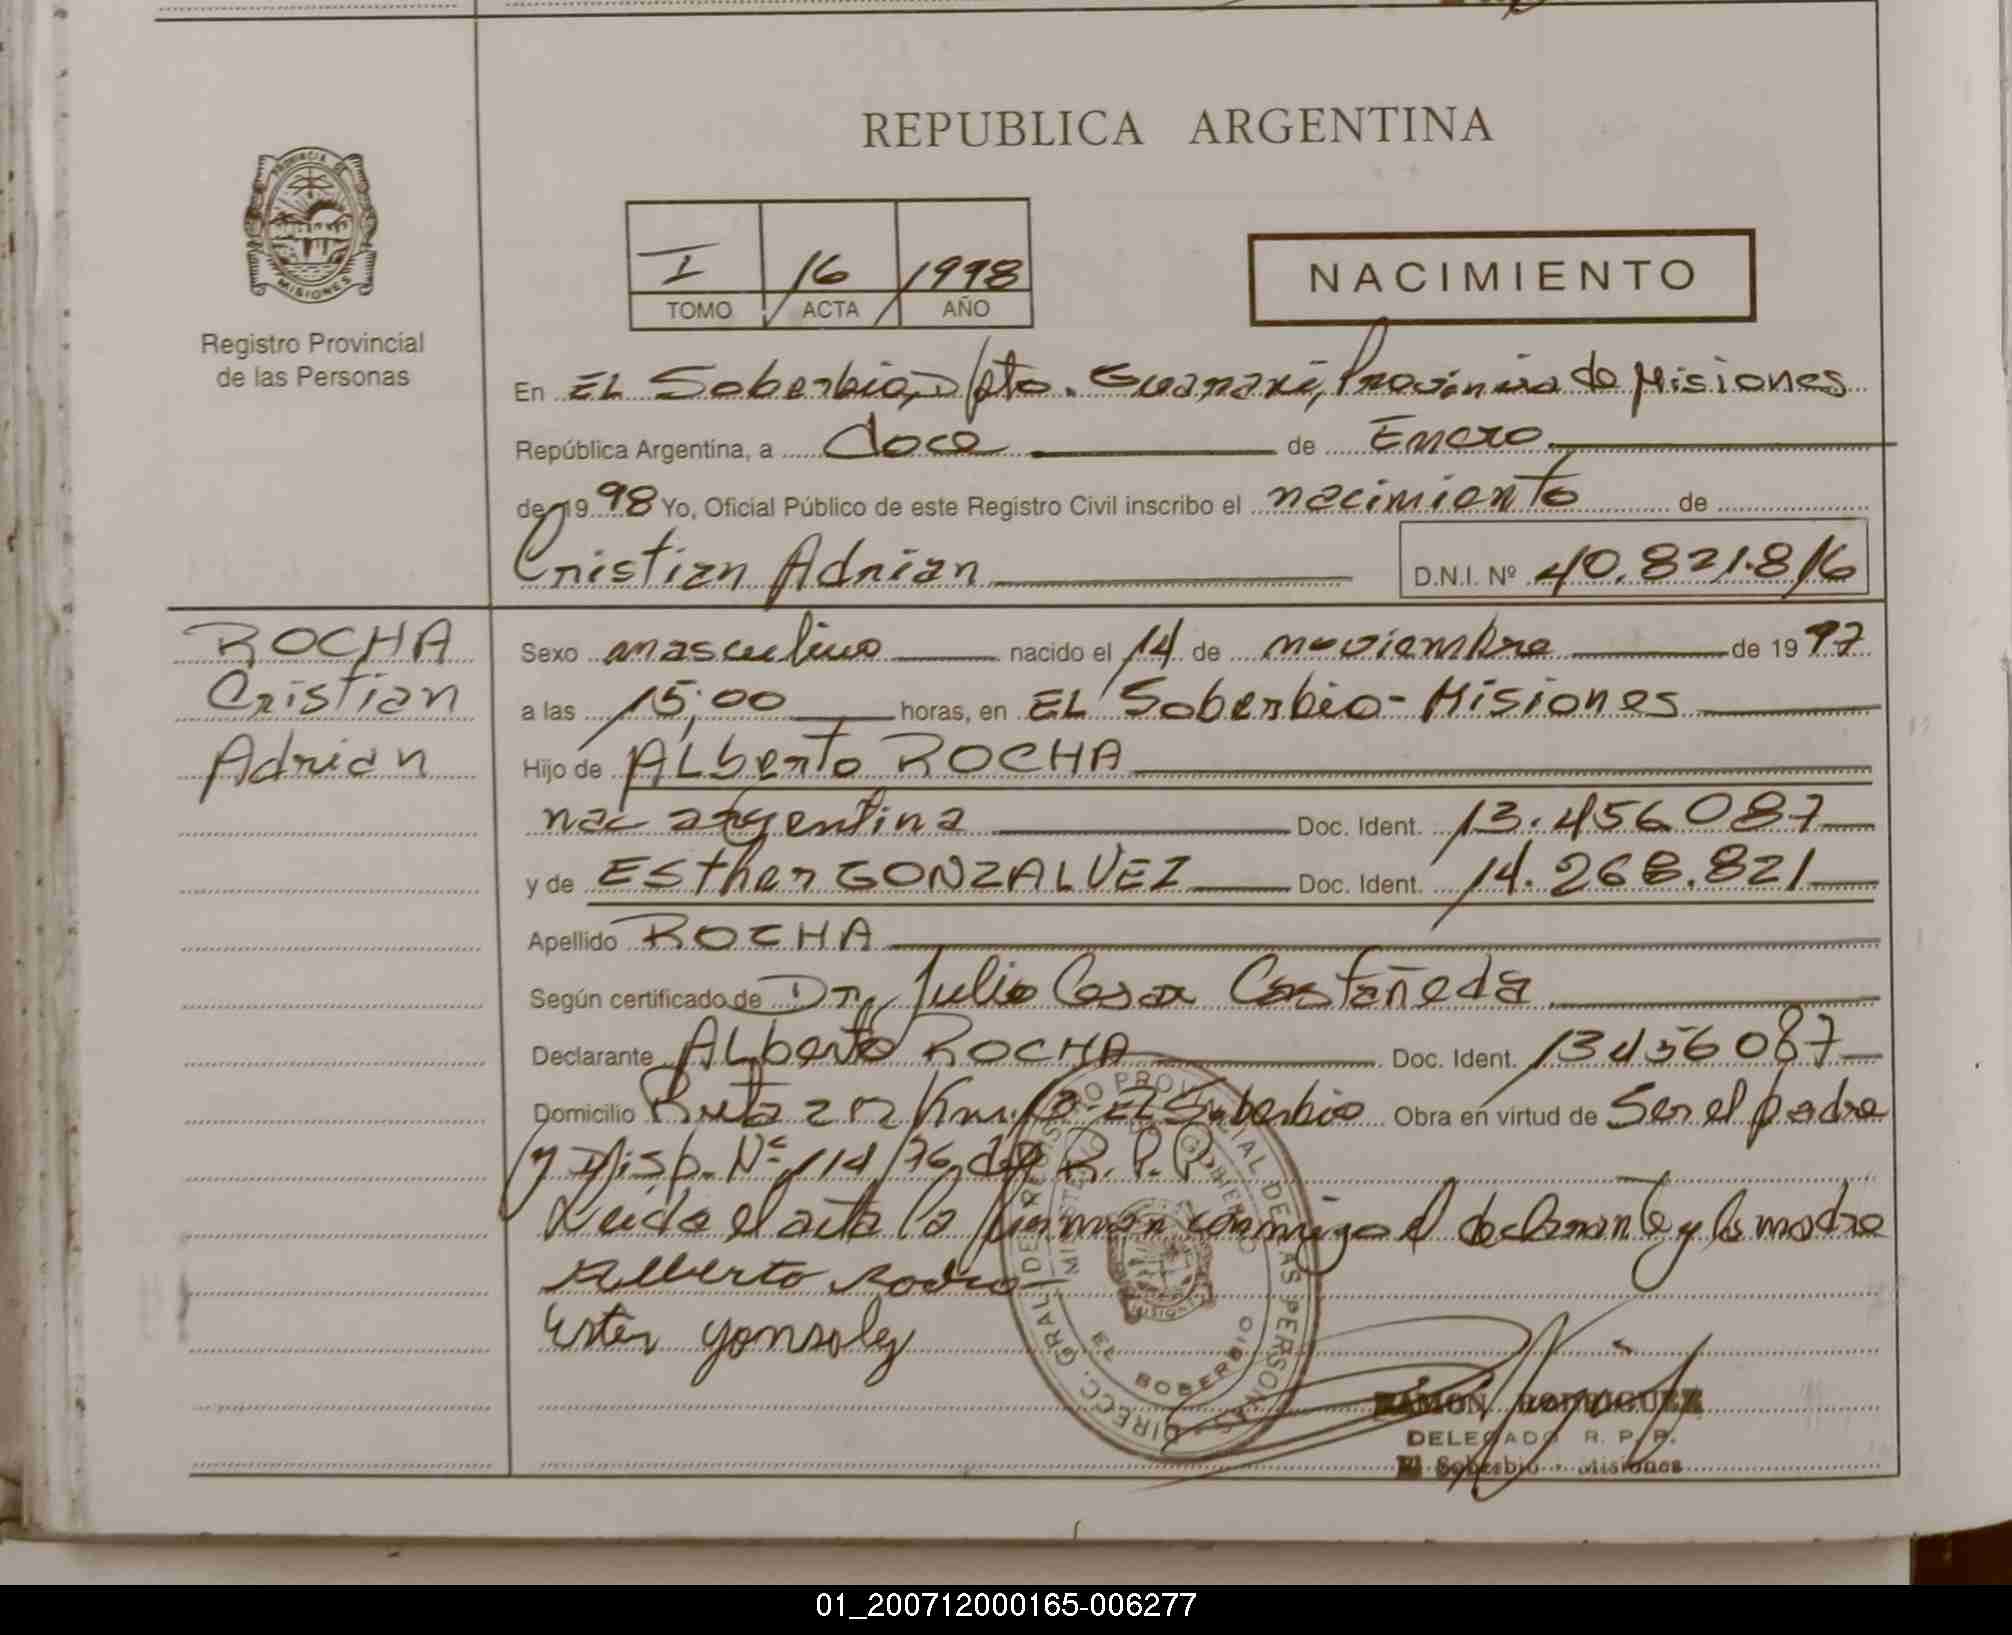 REPUBLICA ARGENTINA
PROVINCIA DE MISIONES
Registro Provincial
de las Personas
I 16 1998
TOMO ACTA AÑO
NACIMIENTO
En EL Soberbio, D/pto. Guarani, Provincia de Misiones
República Argentina, a doce de Enero
de 19 98 Yo, Oficial Público de este Registro Civil inscribo el nacimiento de
Cristian Adrian D.N.I. Nº 40.821.816
ROCHA
Cristian
Adrian
Sexo masculino nacido el 14 de noviembre de 19 97
a las 15,00 horas, en EL Soberbio - Misiones
Hijo de ALberto ROCHA
nac argentina Doc. Ident. 13.456087
y de ESther GONZALVEZ Doc. Ident. 14.268.821
Apellido ROCHA
Según certificado de Dr. Julio Cesar Castañeda
Declarante ALberto ROCHA Doc. Ident. 13456087
Domicilio Ruta 2 Km. EL Soberbio Obra en virtud de Ser el padre
y Disp. Nº 114/76 del R.P.P.
Leida el acta la firman conmigo el declarante y la madre
Alberto Rocha
Ester gonsalez
DIRECC. GRAL. DE REGISTRO PROVINCIAL DE LAS PERSONAS
MINISTERIO DE GOBIERNO
MISIONES
EL SOBERBIO
RAMON RODRIGUEZ
DELEGADO R. P. P.
El Soberbio - Misiones
01_200712000165-006277